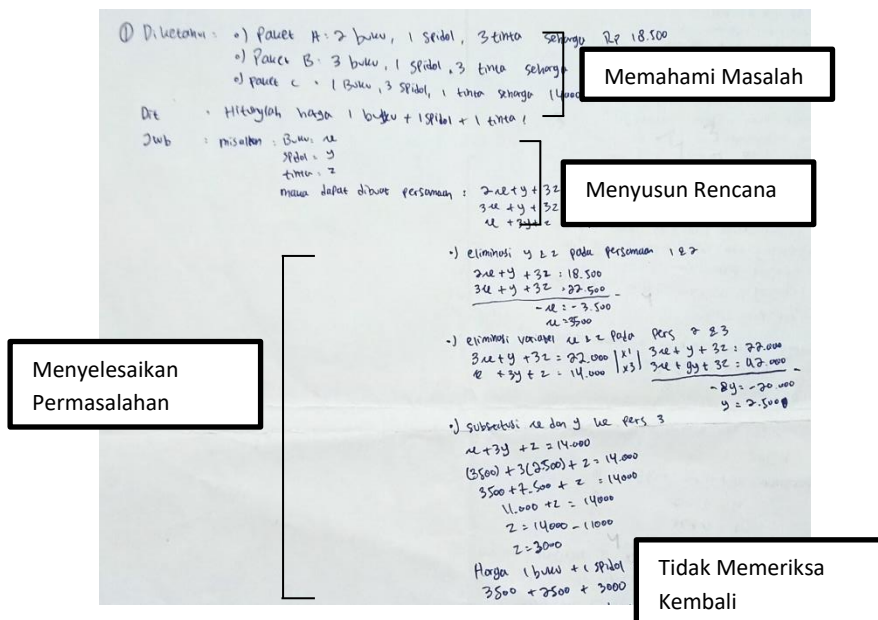 ① Diketahui : •) Paket A : 2 buku, 1 spidol, 3 tinta seharga Rp 18.500
•) Paket B : 3 buku, 1 spidol, 3 tinta seharga
•) paket C : 1 Buku, 3 spidol, 1 tinta seharga 14000
Memahami Masalah
Dit : Hitunglah harga 1 buku + 1 spidol + 1 tinta !
Jwb : misalkan : Buku : x
spidol = y
tinta : z
maka dapat dibuat persamaan : 2x + y + 3z
3x + y + 3z
x + 3y + z
Menyusun Rencana
•) eliminasi y & z pada persamaan 1 & 2
2x + y + 3z : 18.500
3x + y + 3z : 22.500 -
- x : - 3.500
x = 3500
•) eliminasi variabel x & z pada Pers 2 & 3
3x + y + 3z = 22.000 | x1 | 3x + y + 3z : 22.000
x + 3y + z = 14.000 | x3 | 3x + 9y + 3z : 42.000 -
-8y = -20.000
y = 2.500
•) substitusi x dan y ke pers 3
x + 3y + z = 14.000
(3500) + 3(2500) + z = 14.000
3500 + 7.500 + z = 14000
11.000 + z = 14000
z = 14000 - 11000
z = 3000
Harga 1 buku + 1 spidol
3500 + 2500 + 3000
Menyelesaikan
Permasalahan
Tidak Memeriksa
Kembali